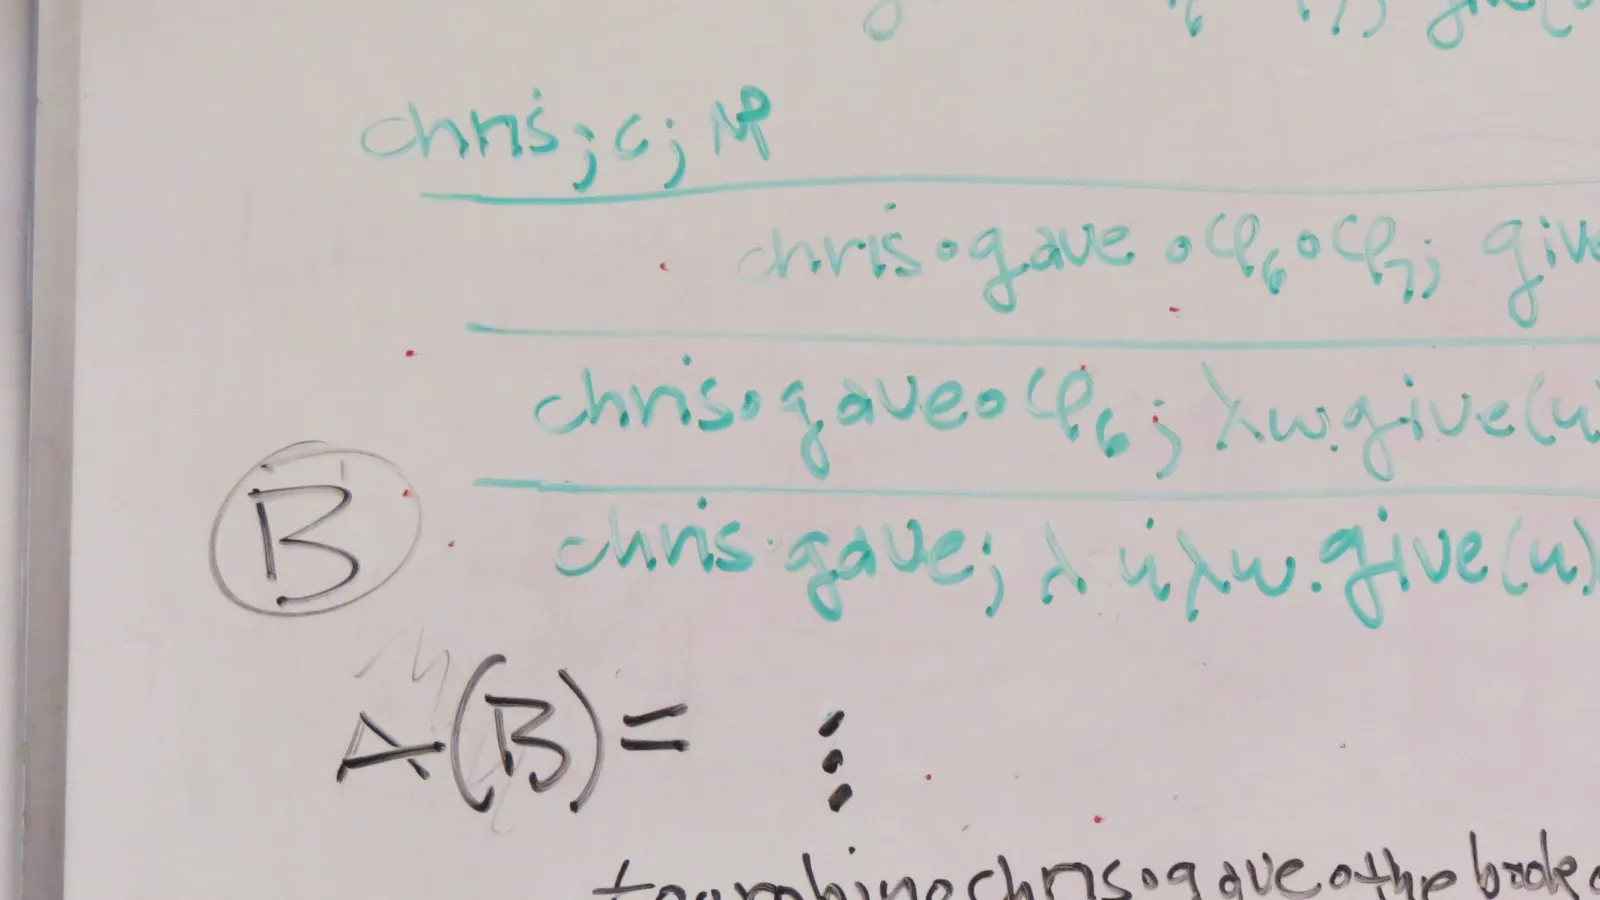 chris; c; NP
chris∘gave∘φ₆∘φ₇; giv
chris∘gave∘φ₆; λw.give(u
B
chris∘gave; λuλw.give(u)
A(B)= ⋮
chris∘gave∘the book∘